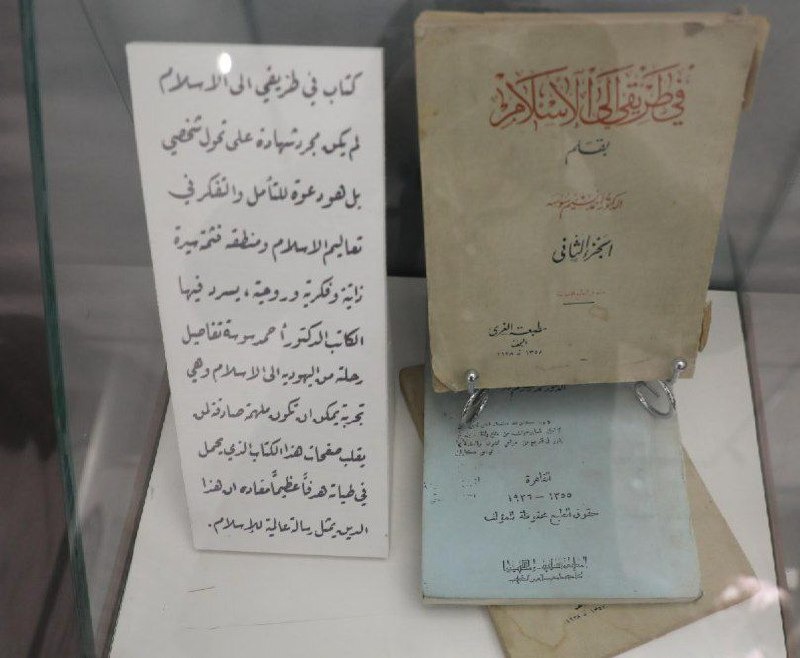 كتاب في طريقي الى الاسلام
لم يكن مجرد شهادة على تحول شخصي
بل هو دعوة للتأمل والتفكر في
تعاليم الاسلام ومنطقه فثمة سيرة
ذاتية وفكرية وروحية، يسرد فيها
الكاتب الدكتور أحمد سوسة تفاصيل
رحلة من اليهودية الى الاسلام وهي
تجربة يمكن ان تكون ملهمة صادقة لمن
يقلب صفحات هذا الكتاب الذي يحمل
في طياته هدفاً عظيماً مفاده ان هذا
الدين يمثل رسالة عالمية للإسلام.
في طريقي الى الاسلام
بقلم
الدكتور احمد نسيم سوسه
الجزء الثاني
مطبعة الغرى
النجف
١٣٥٧ هـ ١٩٣٨
القاهرة
١٣٥٥ – ١٩٣٦
حقوق الطبع محفوظة للمؤلف